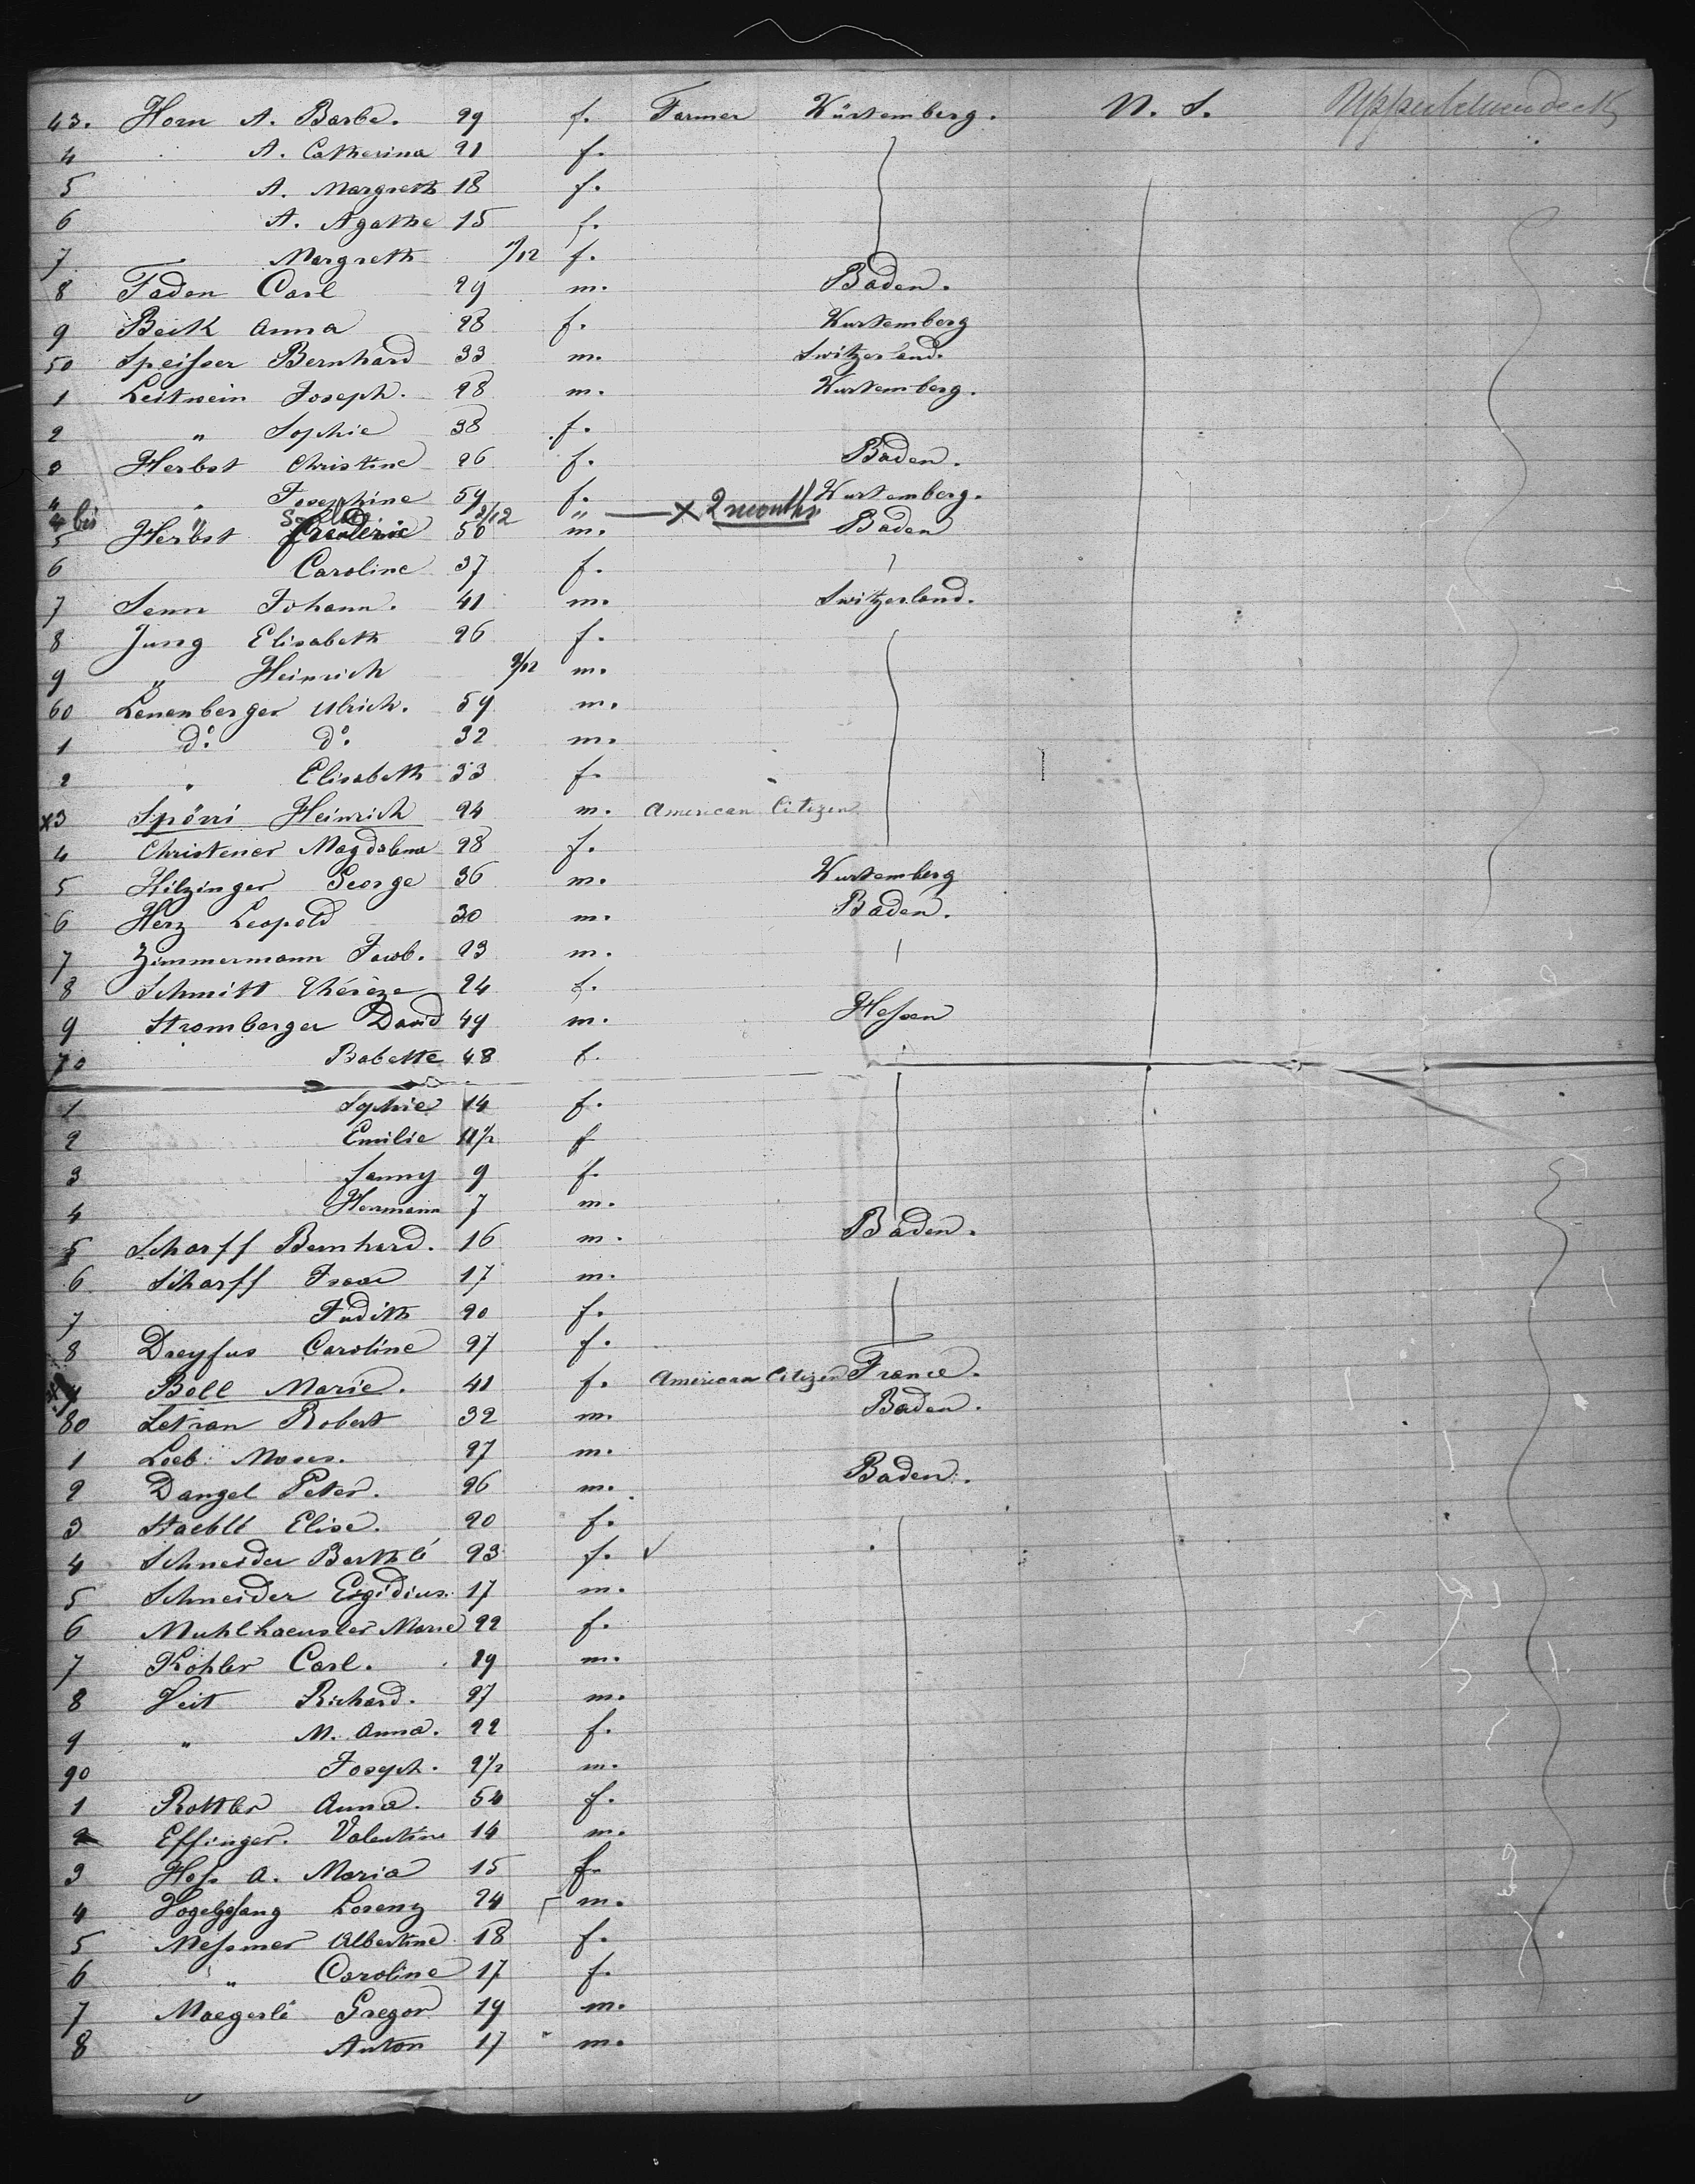 43. Horn A. Barbe. 29 f. Farmer Würtemberg. U. S. Upper between deck
4 A. Catherina 21 f.
5 A. Margreth 18 f.
6 A. Agathe 15 f.
7 Margreth /12 f.
8 Faden Carl 29 m. Baden.
9 Beik Anna 28 f. Wurtemberg
50 Speisser Bernhard 33 m. Switzerland.
1 Leitwein Joseph. 28 m. Wurtemberg.
2 " Sophie 38 f.
3 Herbst Christine 26 f. Baden.
4 " Josephine 59 f. Wurtemberg.
4 bis " Sophie 2/12 " — x 2 months
5 Herbst Frederic 50 m. Baden
6 Caroline 37 f.
7 Senn Johann. 41 m. Switzerland.
8 Jung Elisabeth 26 f.
9 " Heinrich 9/12 m.
60 Leuenberger Ulrich. 59 m.
1 do. do. 32 m.
2 " Elisabeth 33 f.
x3 Spörri Heinrich 24 m. American Citizen
4 Christener Magdalena 28 f.
5 Hilzinger George 36 m. Wurtemberg
6 Herz Leopold 30 m. Baden.
7 Zimmermann Jacob. 23 m.
8 Schmitt Thérèze 24 f.
9 Stromberger David 49 m. Hessen
70 Babette 48 f.
1 Sophie 14 f.
2 Emilie 11 1/2 f
3 fanny 9 f.
4 Hermann 7 m.
5 Scharff Bernhard. 16 m. Baden.
6 Scharff Isaac 17 m.
7 Judith 20 f.
8 Dreyfus Caroline 27 f.
x9 Boll Marie. 41 f. American Citizen France.
80 Letran Robert 32 m. Baden.
1 Loeb Moses. 27 m.
2 Dangel Peter. 26 m. Baden.
3 Staeblé Elise. 20 f.
4 Schneider Barthlé 23 f. ✓
5 Schneider Egidius. 17 m.
6 Muhlhaeusler Marie 22 f.
7 Kohler Carl. 29 m.
8 Veit Richard. 27 m.
9 " M. Anna. 22 f.
90 Joseph. 2 1/2 m.
1 Rottler Anna. 54 f.
2 Effinger. Valentine 14 m.
3 Hess A. Maria 15 f.
4 Vogelgesang Lorenz 24 m.
5 Messmer Albertine 18 f.
6 " Caroline 17 f.
7 Maegerlé Gregor 19 m.
8 Anton 17 m.